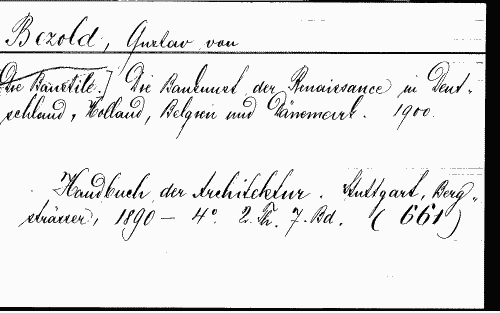 Bezold, Gustav von
Die Baustile.] Die Baukunst der Renaissance in Deut-
schland, Holland, Belgien und Dänemark. 1900.
Handbuch der Architektur. Stuttgart, Berg-
strässer, 1890- 4° 2. Th. 7. Bd. (661)